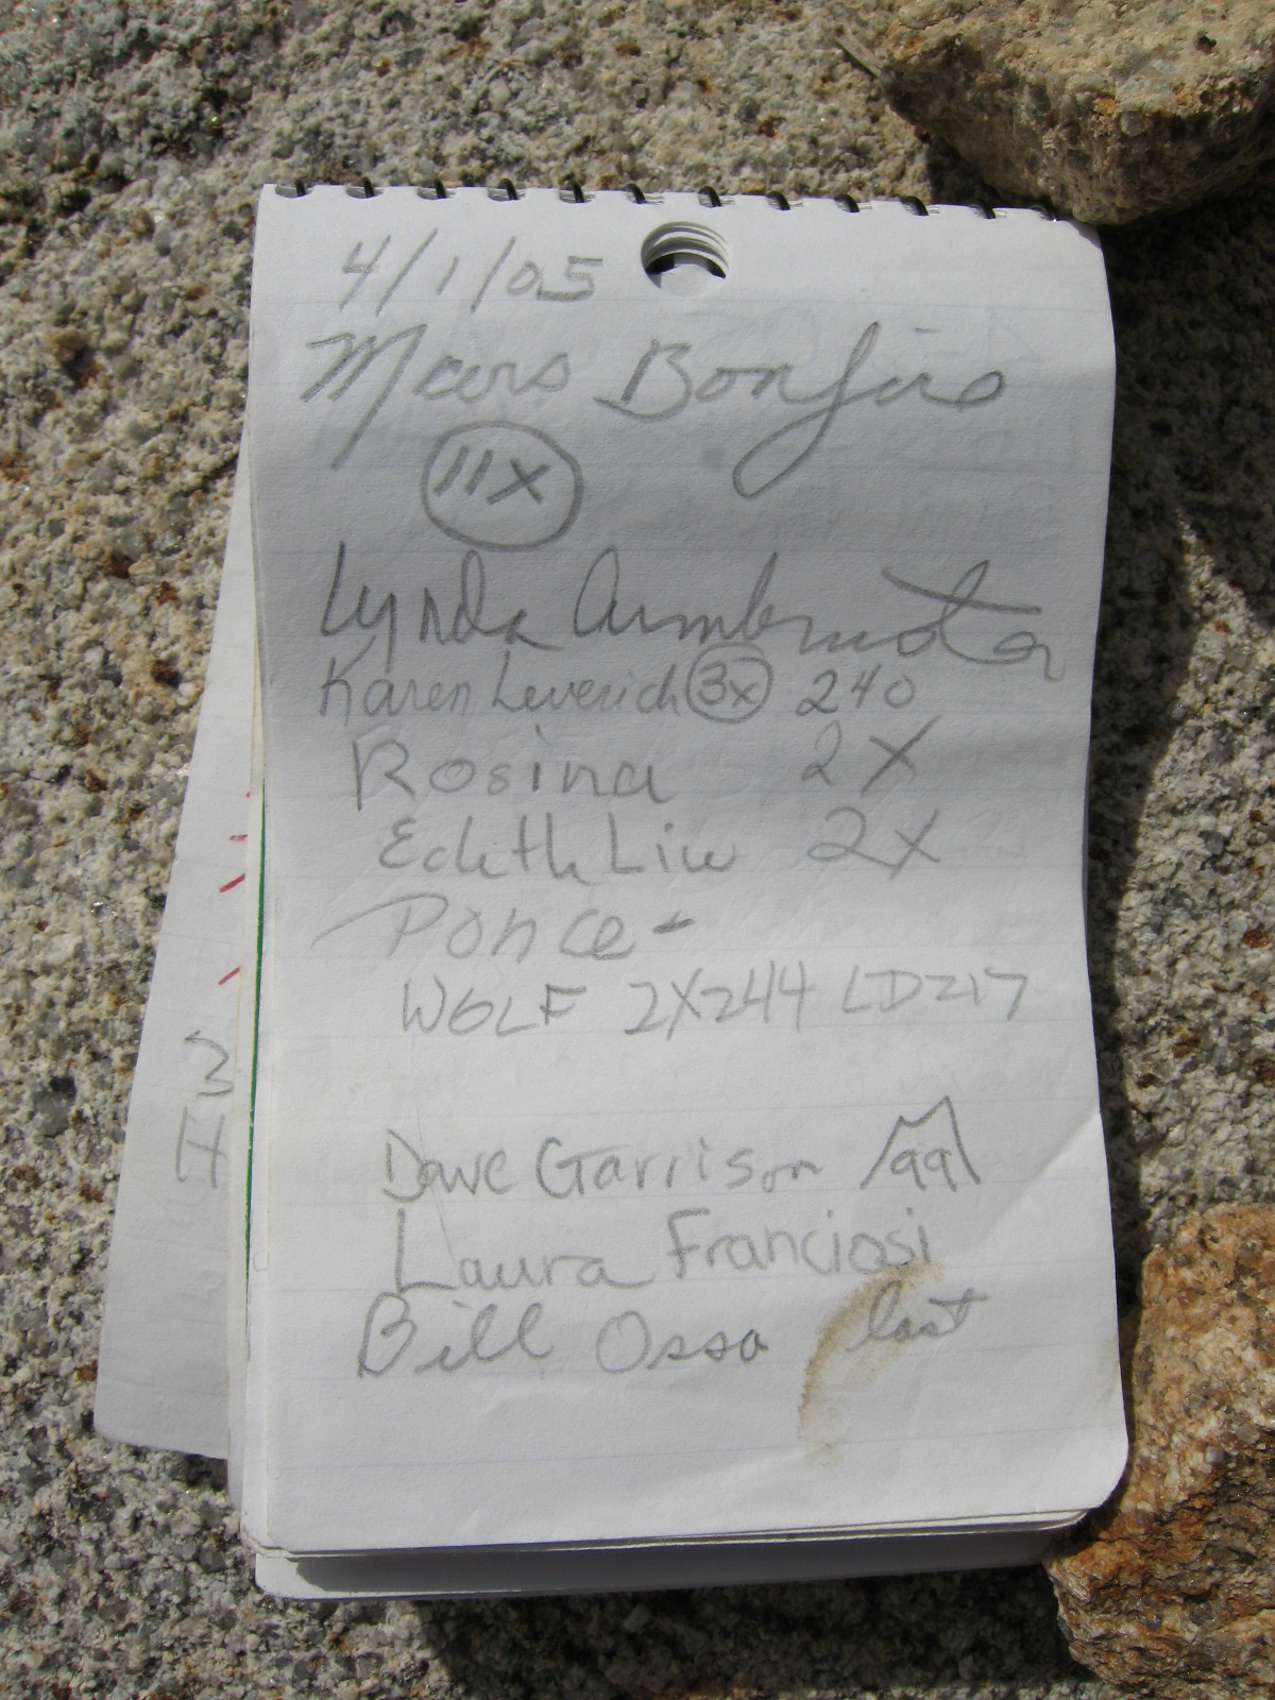 4/1/05
Mars Bonfire
11x
Lynda Armbruster
Karen Leverich 3x 240
Rosina 2X
Edith Liu 2X
Ponce -
WOLF 2X244 LD217
Dave Garrison 99
Laura Franciosi
Bill Ossa last
3
H